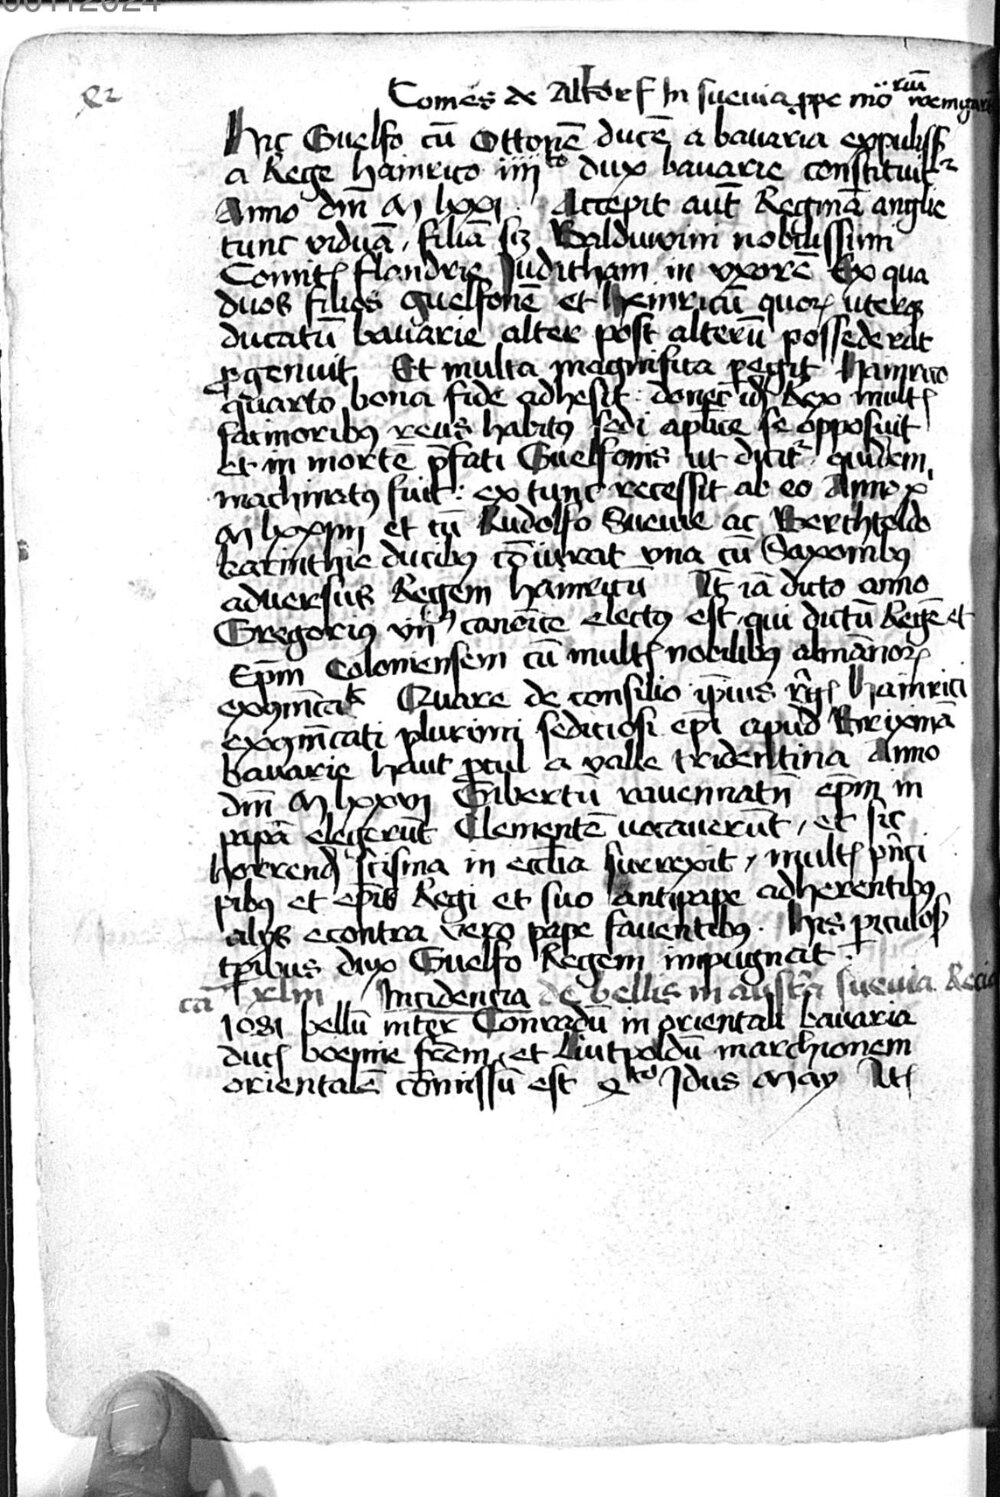 Comes de Altorf In suevia ꝓpe mo
Hic Guelfo cū Ottonē ducē a bavaria expuliss
a Rege Hainrico iiij to dux bavarie constituit
Anno dm̄ M lxxi . Accepit aut̄ Reginā anglie
tunc viduā, filiā sꝫ Balduwini nobilissimi
Comitꝭ flandrie Juditham in vxorē Ex qua
duos filios Guelfonē et Heinricū quoꝝ uterqꝫ
ducatū bavarie alter post alterū possederat
ꝓgenuit Et multa magnifica ꝑegit Hainrico
quarto bona fide adhesit : donec idꝭ Rex multꝭ
facinoribꝰ reus habitꝰ sedi aplice se opposuit
et in mortē p̄fati Guelfonis ut dicit̄ quidem
machinatꝰ fuit : ex tunc recessit ab eo Anno
M lxxiiij et cū Rudolfo Suevie ac Berchtoldo
karinthie ducibꝰ cōiurat una cū Saxonibꝰ
adversus Regem Hainricū It̄ iā dicto anno
Gregoriꝰ vij canōice electꝰ est, qui dictū Regē et
Epm̄ Coloniensem cū multꝭ nobilibꝰ almānoꝝ
exꝯm̄cat Quare de consilio ip̄ius rgꝭ Hainrici
exꝯm̄cati plurimi sediciosi ep̄i apud Brixinā
bavarie haut ꝓcul a valle tridentina Anno
dm̄ M lxxvj Gibertū ravennatn̄ epm̄ in
papā elegerūt Clementē vocaverūt, et sic
horrendꝰ scisma in ecclia surrexit, multꝭ p̄nci
pibꝰ et ep̄is Regi et suo antipape adherentibꝰ
alijs econtra vero pape faventibꝰ. His ꝑiculosꝭ
tp̄ribus dux Guelfo Regem impugnat.
ca xliij Incidencia de bellis in austria suevia
1081 bellū inter Conradū in orientali bavaria
ducꝭ boemie frēm, et Liutpoldū marchionem
orientalē cōmissū est to Idus May Itꝭ